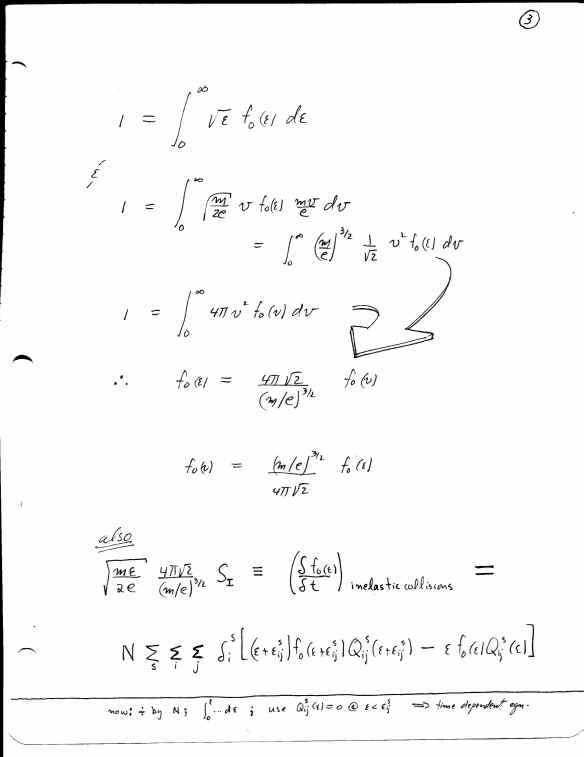 ③
1 = ∫₀^∞ √ε f₀(ε) dε
ε
1 = ∫₀^∞ √(m/2e) v f₀(ε) mv/e dv
= ∫₀^∞ (m/e)^3/2 1/√2 v² f₀(ε) dv
1 = ∫₀^∞ 4π v² f₀(v) dv
∴ f₀(ε) = 4π√2/(m/e)^3/2 f₀(v)
f₀(v) = (m/e)^3/2/4π√2 f₀(ε)
also
√(mε/2e) 4π√2/(m/e)^3/2 S_I ≡ (δf₀(ε)/δt) inelastic collisions =
N Σ_s Σ_i Σ_j δ_i^s [(ε+ε_ij^s) f₀(ε+ε_ij^s) Q_ij^s(ε+ε_ij^s) − ε f₀(ε) Q_ij^s(ε)]
now: ÷ by N ; ∫₀^ε ... dε ; use Q_ij^s(ε) = 0 @ ε < ε_ij^s ⇒ time dependent eqn.